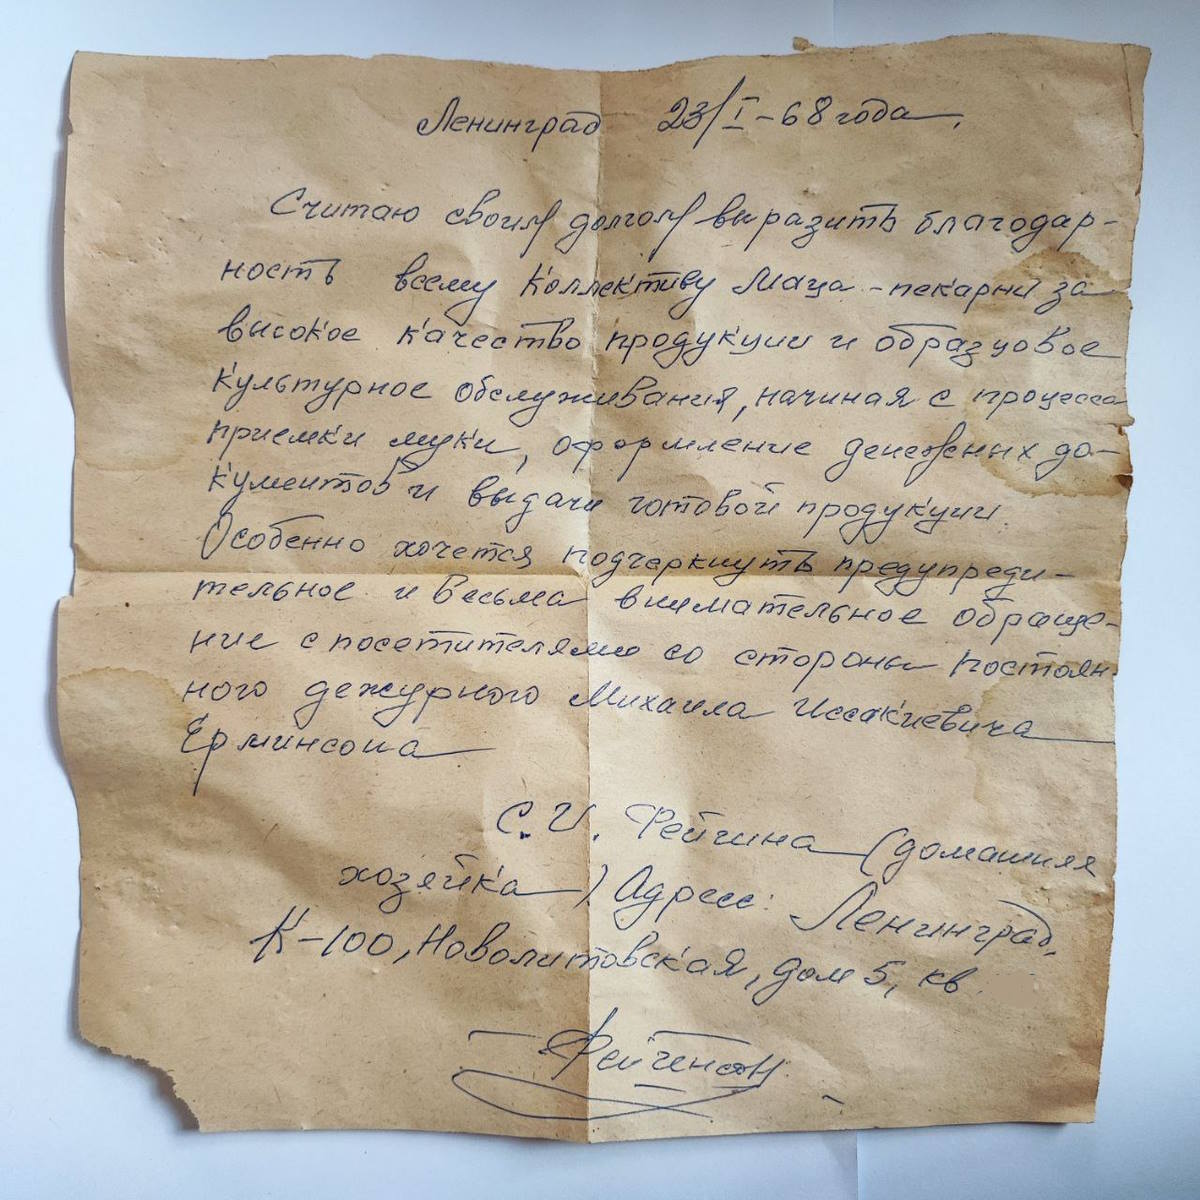 Ленинград 23/I-68 года.
Считаю своим долгом выразить благодар-
ность всему коллективу маца-пекарни за
высокое качество продукции и образцовое
культурное обслуживания, начиная с процесса
приемки муки, оформление денежных до-
кументов и выдачи готовой продукции.
Особенно хочется подчеркнуть предупреди-
тельное и весьма внимательное обраще-
ние с посетителями со стороны постоян-
ного дежурного Михаила Иссакиевича
Ерминсона
С. И. Фейгина (домашняя
хозяйка) Адрес: Ленинград,
К-100, Новолитовская, дом 5, кв.